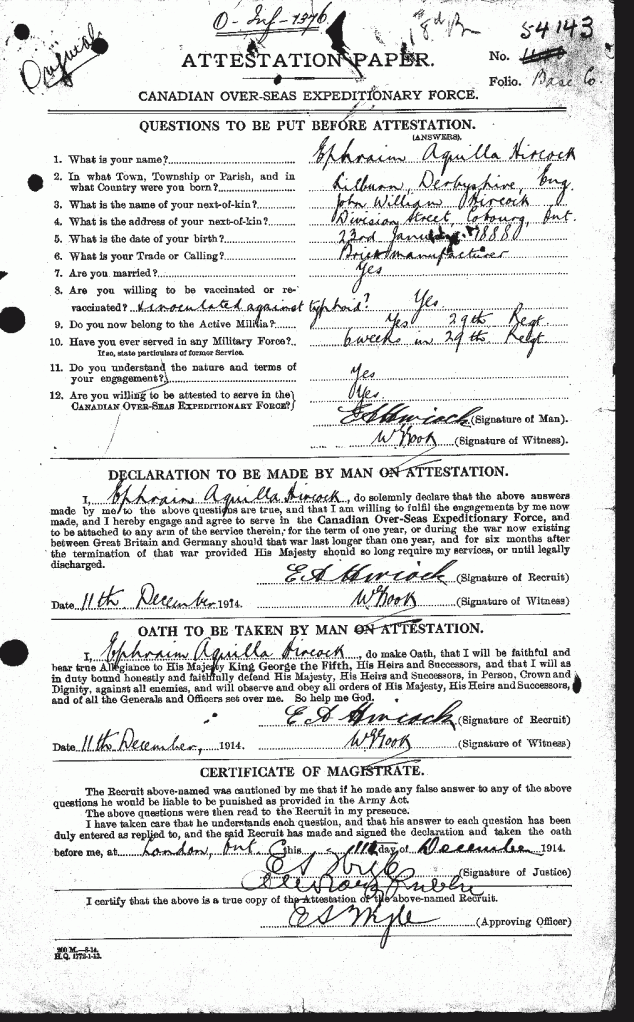 O-Inf-1376
Original
18th Bn
54143
ATTESTATION PAPER.
No.
Folio. Base Co
CANADIAN OVER-SEAS EXPEDITIONARY FORCE.
QUESTIONS TO BE PUT BEFORE ATTESTATION.
(ANSWERS).
1. What is your name? Ephraim Aquilla Hircock
2. In what Town, Township or Parish, and in
what Country were you born? Kilburn, Derbyshire, Eng.
3. What is the name of your next-of-kin? John William Hircock
4. What is the address of your next-of-kin? Division Street, Cobourg, Ont.
5. What is the date of your birth? 23rd January 1888
6. What is your Trade or Calling? Brick manufacturer
7. Are you married? Yes
8. Are you willing to be vaccinated or re-
vaccinated? & inoculated against typhoid? Yes
9. Do you now belong to the Active Militia? Yes 29th Regt.
10. Have you ever served in any Military Force? 6 weeks in 29th Regt
If so, state particulars of former Service.
11. Do you understand the nature and terms of
your engagement? Yes
12. Are you willing to be attested to serve in the
CANADIAN OVER-SEAS EXPEDITIONARY FORCE? Yes.
E A Hircock (Signature of Man).
W Rook (Signature of Witness).
DECLARATION TO BE MADE BY MAN ON ATTESTATION.
I, Ephraim Aquilla Hircock, do solemnly declare that the above answers
made by me to the above questions are true, and that I am willing to fulfil the engagements by me now
made, and I hereby engage and agree to serve in the Canadian Over-Seas Expeditionary Force, and
to be attached to any arm of the service therein, for the term of one year, or during the war now existing
between Great Britain and Germany should that war last longer than one year, and for six months after
the termination of that war provided His Majesty should so long require my services, or until legally
discharged.
E A Hircock (Signature of Recruit)
Date 11th December 1914. W Rook (Signature of Witness)
OATH TO BE TAKEN BY MAN ON ATTESTATION.
I, Ephraim Aquilla Hircock, do make Oath, that I will be faithful and
bear true Allegiance to His Majesty King George the Fifth, His Heirs and Successors, and that I will as
in duty bound honestly and faithfully defend His Majesty, His Heirs and Successors, in Person, Crown and
Dignity, against all enemies, and will observe and obey all orders of His Majesty, His Heirs and Successors,
and of all the Generals and Officers set over me. So help me God.
E A Hircock (Signature of Recruit)
Date 11th December, 1914. W Rook (Signature of Witness)
CERTIFICATE OF MAGISTRATE.
The Recruit above-named was cautioned by me that if he made any false answer to any of the above
questions he would be liable to be punished as provided in the Army Act.
The above questions were then read to the Recruit in my presence.
I have taken care that he understands each question, and that his answer to each question has been
duly entered as replied to, and the said Recruit has made and signed the declaration and taken the oath
before me, at London, Ont. this 11th day of December 1914.
(Signature of Justice)
Notary Public
I certify that the above is a true copy of the Attestation of the above-named Recruit.
E S Wigle (Approving Officer)
200 M.—8-14.
H.Q. 1772-1-13.